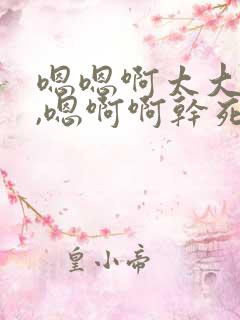 嗯嗯啊太大
,嗯啊啊幹死
皇小帝